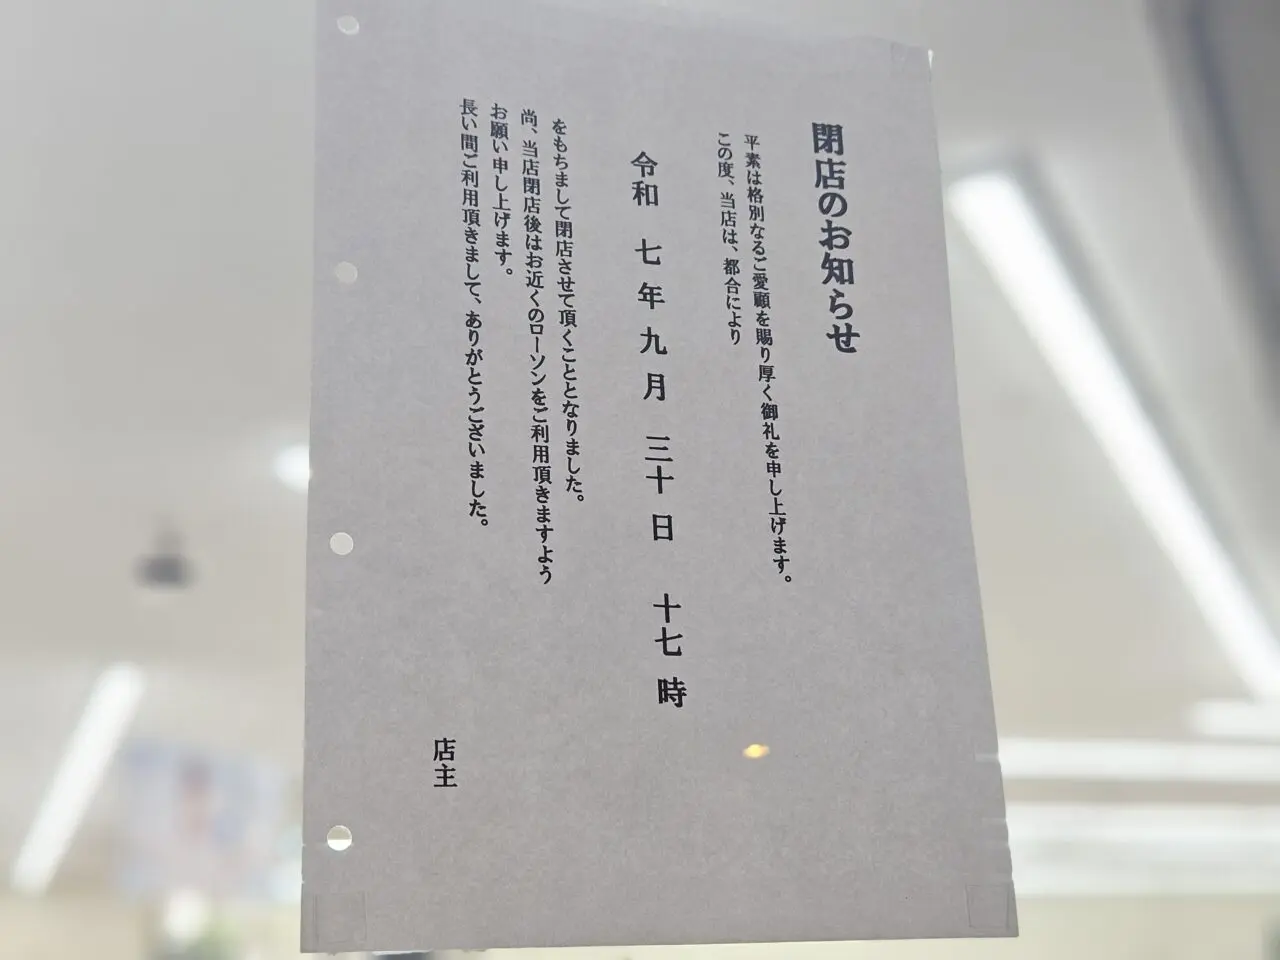 閉店のお知らせ
平素は格別なるご愛顧を賜り厚く御礼を申し上げます。
この度、当店は、都合により
令和 七年九月 三十日 十七時
をもちまして閉店させて頂くこととなりました。
尚、当店閉店後はお近くのローソンをご利用頂きますよう
お願い申し上げます。
長い間ご利用頂きまして、ありがとうございました。
店主